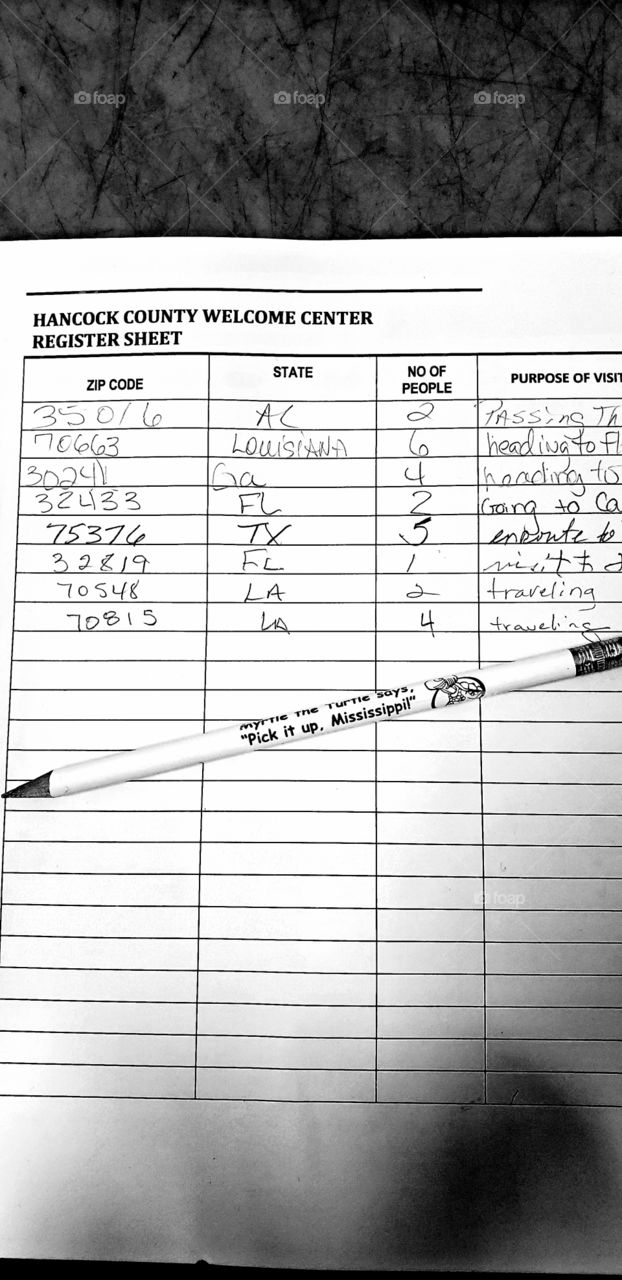 foap foap foap
HANCOCK COUNTY WELCOME CENTER
REGISTER SHEET
ZIP CODE STATE NO OF PEOPLE PURPOSE OF VISIT
35016 AL 2 PASSING Th
70663 LOUISIANA 6 heading to Fl
30241 Ga 4 heading to
32433 FL 2 Going to Ca
75376 TX 5 enroute to
32819 FL 1 visit
70548 LA 2 traveling
70815 LA 4 traveling
Myrtle The Turtle says,
"Pick it up, Mississippi!"
foap